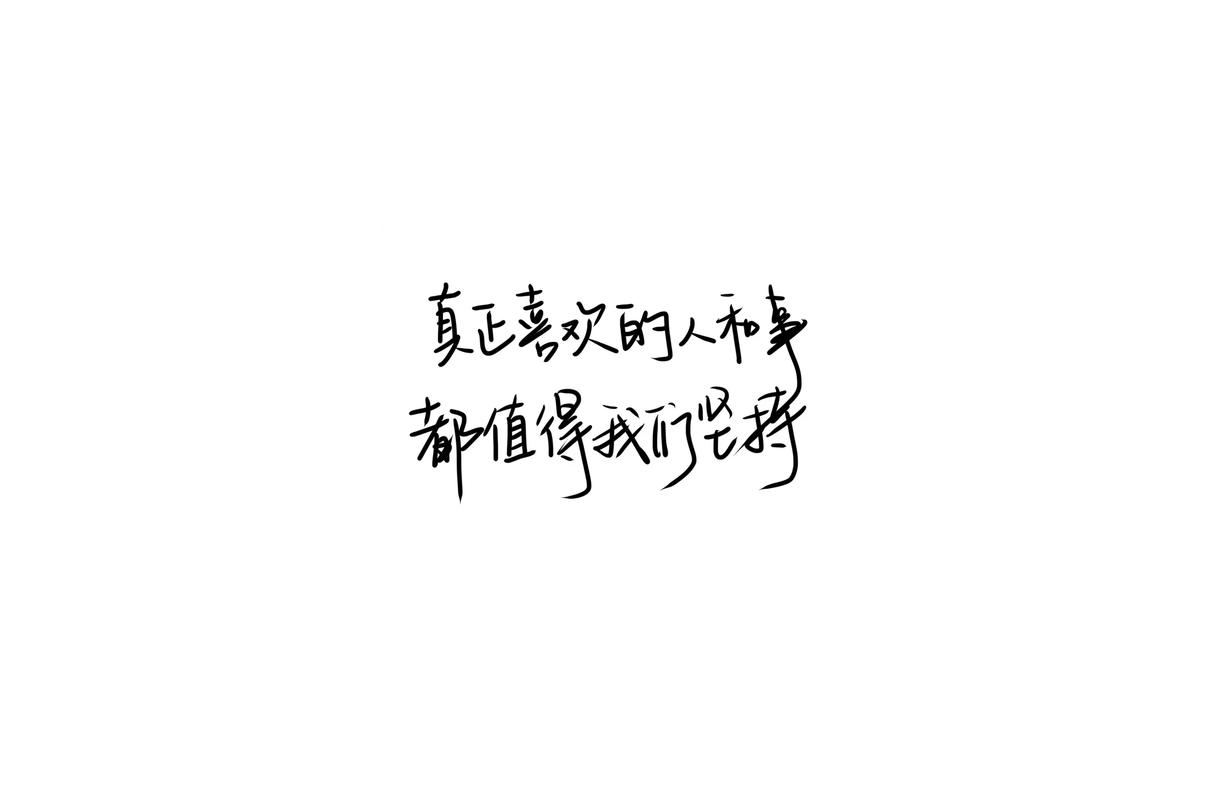 真正喜欢的人和事
都值得我们坚持